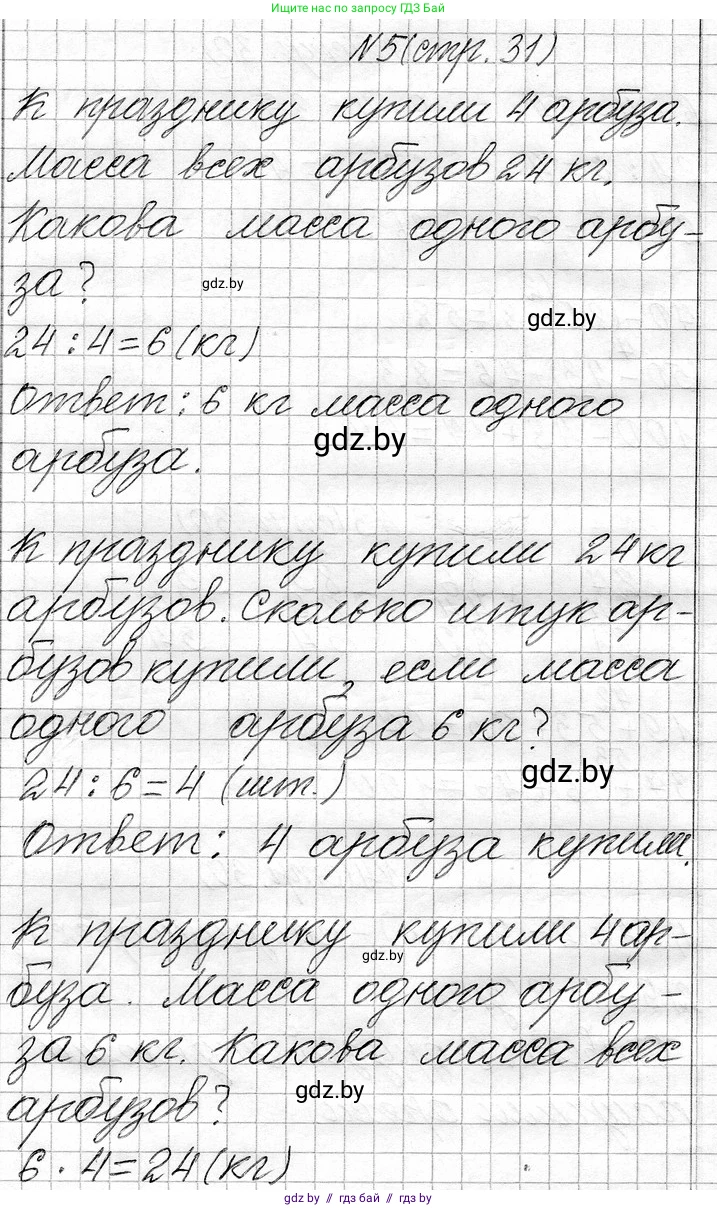 Ищите нас по запросу ГДЗ Бай
N5(стр. 31)
К празднику купили 4 арбуза.
Масса всех арбузов 24 кг.
Какова масса одного арбу-
за?
gdz.by
gdz.by
24 : 4 = 6 (кг)
Ответ: 6 кг масса одного
gdz.by
арбуза.
К празднику купили 24 кг
арбузов. Сколько штук ар-
бузов купили, если масса
одного арбуза 6 кг?
gdz.by
24 : 6 = 4 (шт.)
Ответ: 4 арбуза купили.
К празднику купили 4 ар-
gdz.by
буза. Масса одного арбу-
за 6 кг. Какова масса всех
арбузов?
gdz.by
6 · 4 = 24 (кг)
gdz by // гдз бай // gdz by